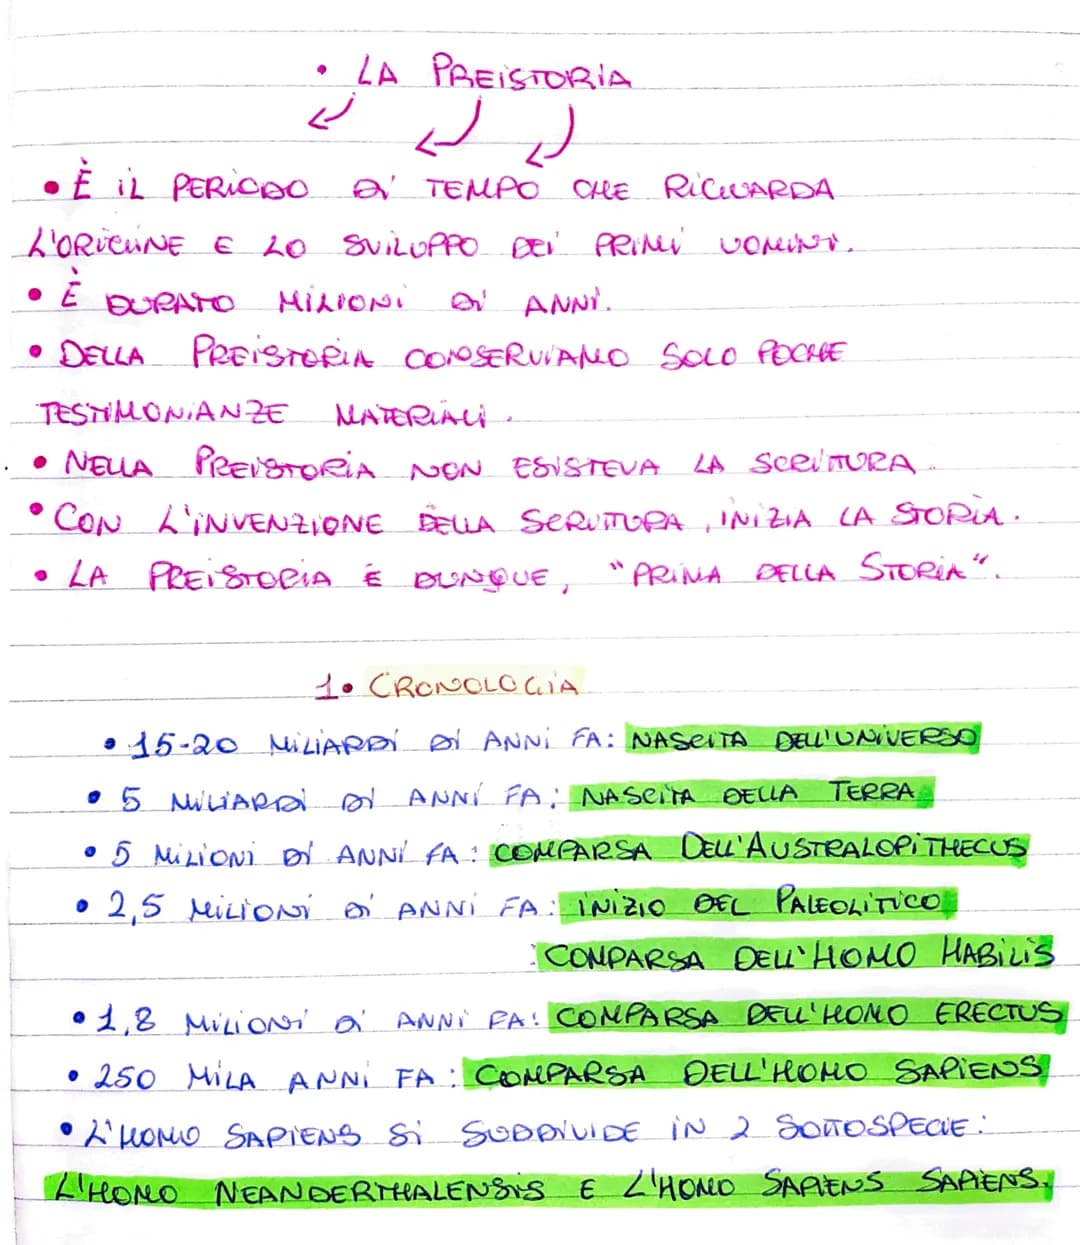 • LA PREISTORIA
• È IL PERIODO DI TEMPO CHE RIGUARDA
L'ORIGINE E LO SVILUPPO DEI PRIMI UOMINI.
• È DURATO MILIONI DI ANNI.
• DELLA PREISTORIA CONSERVIAMO SOLO POCHE
TESTIMONIANZE MATERIALI.
• NELLA PREISTORIA NON ESISTEVA LA SCRITTURA.
• CON L'INVENZIONE DELLA SCRITTURA, INIZIA LA STORIA.
• LA PREISTORIA È DUNQUE, "PRIMA DELLA STORIA".
1. CRONOLOGIA
• 15-20 MILIARDI DI ANNI FA: NASCITA DELL'UNIVERSO
• 5 MILIARDI DI ANNI FA: NASCITA DELLA TERRA
• 5 MILIONI DI ANNI FA: COMPARSA DELL'AUSTRALOPITHECUS
• 2,5 MILIONI DI ANNI FA: INIZIO DEL PALEOLITICO
: COMPARSA DELL'HOMO HABILIS
• 1,8 MILIONI DI ANNI FA: COMPARSA DELL'HOMO ERECTUS
• 250 MILA ANNI FA: COMPARSA DELL'HOMO SAPIENS
• L'HOMO SAPIENS SI SUDDIVIDE IN 2 SOTTOSPECIE:
L'HOMO NEANDERTHALENSIS E L'HOMO SAPIENS SAPIENS.